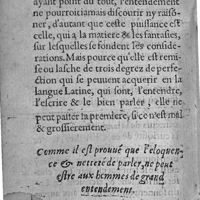 ayant point du tout, l'entendement
ne pourroit iamais discourir ny raison-
ner, d'autant que ceste puissance est
celle, qui a la matiere & les fantasies,
sur lesquelles se fondent les conside-
rations. Mais pource qu'elle est remi-
se ou lasche de trois degrez de perfe-
ction qui se peuvent acquerir en la
langue Latine, qui sont, l'entendre,
l'escrire & le bien parler, elle ne
peut passer la premiere, si ce n'est mal
& grossierement.
Comme il est prouué que l'eloquen-
ce & netteté de parler, ne peut
estre aux hommes de grand
entendement.